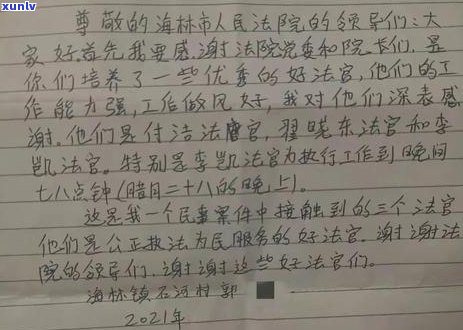 xunlv
尊敬的海林市人民法院的领导们:大
家好.首先我要感谢法院党委和院长们,是
你们培养了一些优秀的好法官,他们的工
作能力强,工作做风好,我对他们深表感
谢.他们是付洁法官,翟曉东法官和李
凯法官.特别是李凯法官为执行工作到晚间
七八点钟(腊月二十八的晚上).
这是我一个民事案件中接触到的三个法官
他们是公正执法为民服务的好法官.谢谢法
院的领导们,谢谢这些好法官们.
海林镇石河村郭
2021年